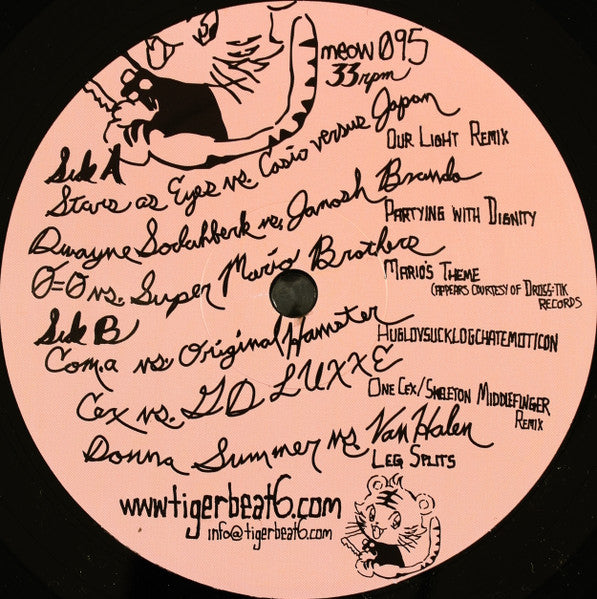 meow 095
33rpm
Side A
Stars as Eyes vs. Casio versus Japan
Our Light Remix
Dwayne Sodahberk vs. Janosh Brando
Partying with Dignity
0=0 vs. Super Mario Brothers
Mario's Theme
(appears courtesy of Dross:tik
Records
Side B
Com.a vs. Original Hamster
Huglovsucklogchatemoticon
Cex vs. GD LUXXE
One Cex/Skeleton Middlefinger
Remix
Donna Summer vs. Van Halen
Leg Splits
www.tigerbeat6.com
info@tigerbeat6.com